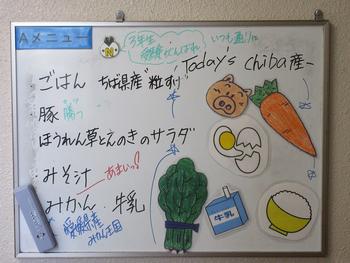 Aメニュー
3年生 いつも通りに
愛媛でがんばれ
Today's chiba産
ごはん ちば県産"粒すけ"
豚 勝つ かつ
ほうれん草とえのきのサラダ
みそ汁 あまいっ!
みかん・牛乳
愛媛県産
みかん王国
牛乳